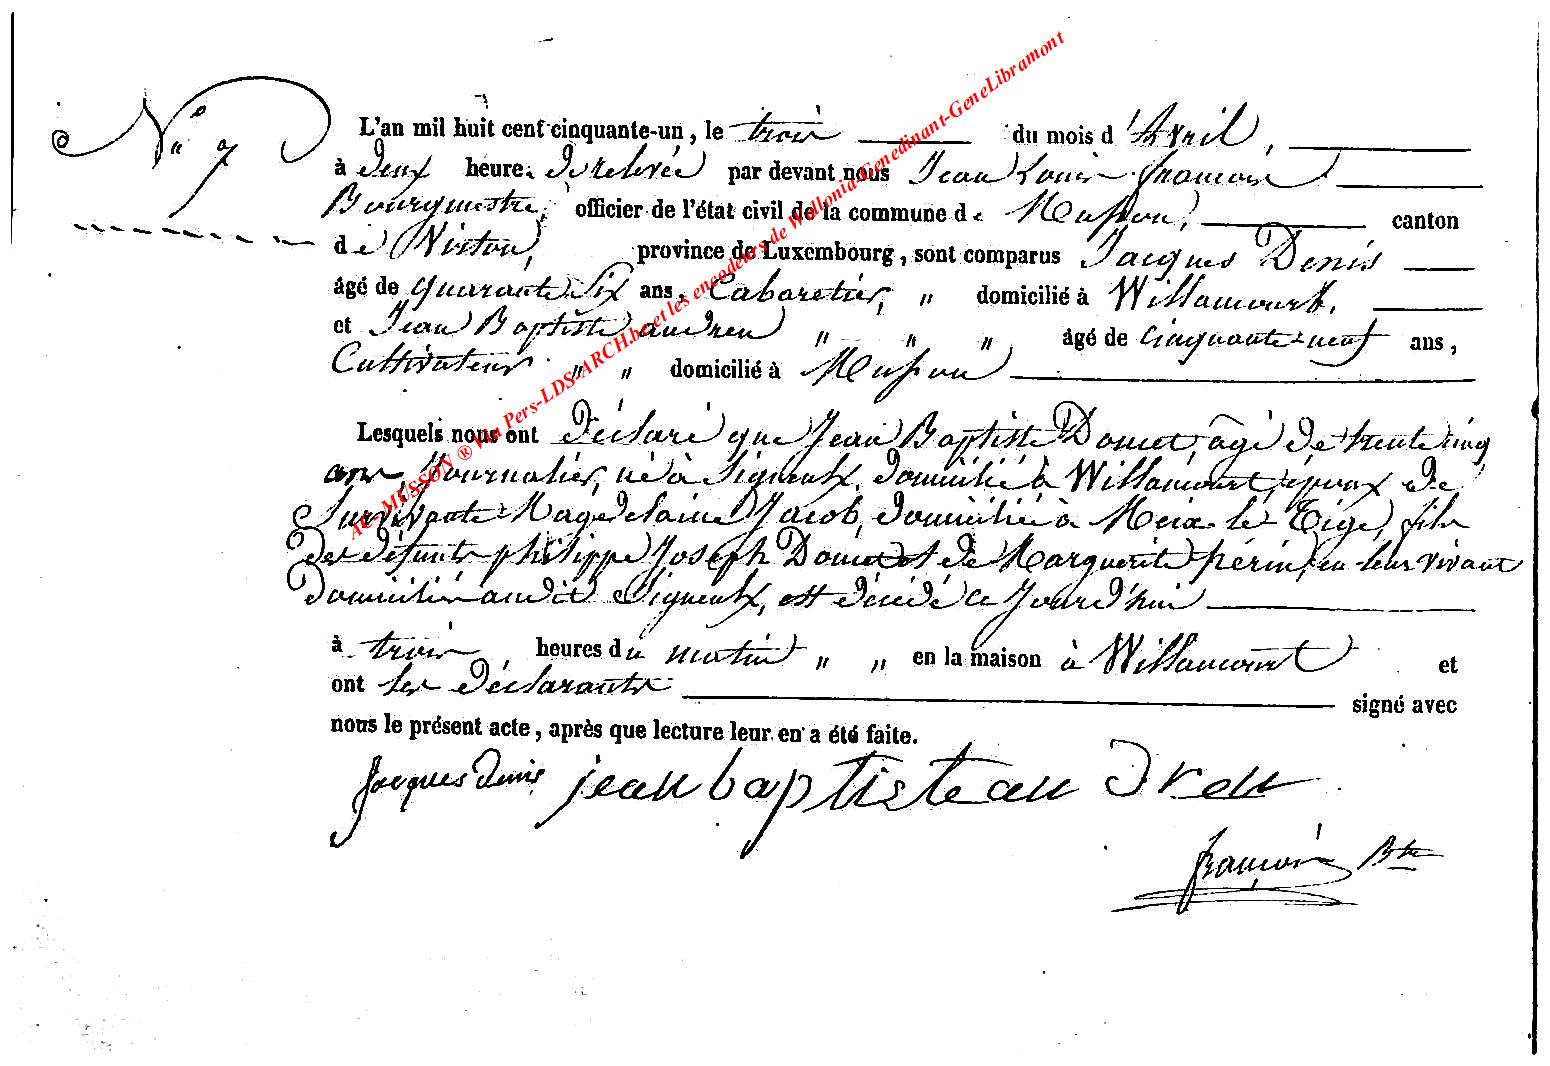 N° 7
L'an mil huit cent cinquante-un, le trois du mois d'Avril,
à deux heures de relevée par devant nous Jean Louis françois
Bourgmestre, officier de l'état civil de la commune de Musson, canton
de Virton, province de Luxembourg, sont comparus Jacques Denis
âgé de quarante Six ans, Cabaretier, " domicilié à Willancourt,
et Jean Baptiste andreu " " " âgé de cinquante-neuf ans,
Cultivateur " " domicilié à Musson
Lesquels nous ont déclaré que Jean Baptiste Domet, âgé de trente cinq
ans, Journalier, né à Signeulx, domicilié à Willancourt, époux de
Survivante Magdelaine Jacob, domiciliée à Meix-le Tige, fils
des défunts philippe Joseph Domet et de Marguerite périn, en leur vivant
domiciliés audit Signeulx, est décédé ce Jourd'hui
à trois heures du matin " " en la maison à Willancourt et
ont les déclarants signé avec
nous le présent acte, après que lecture leur en a été faite.
Jacques Denis jean baptiste au dreu
françois Btre
AC MUSSON ® Via Pers-LDS-ARCH.be et les encodeurs de Wallonia-Genedinant-GeneLibramont